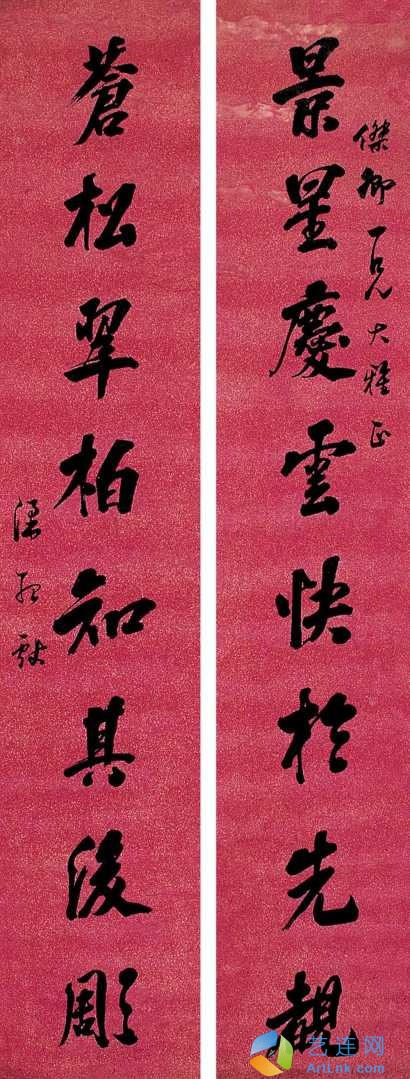 傑卿一兄大雅正
景星慶雲快於先覩
蒼松翠柏知其後彫
梁
艺连网
ArtLnk.com